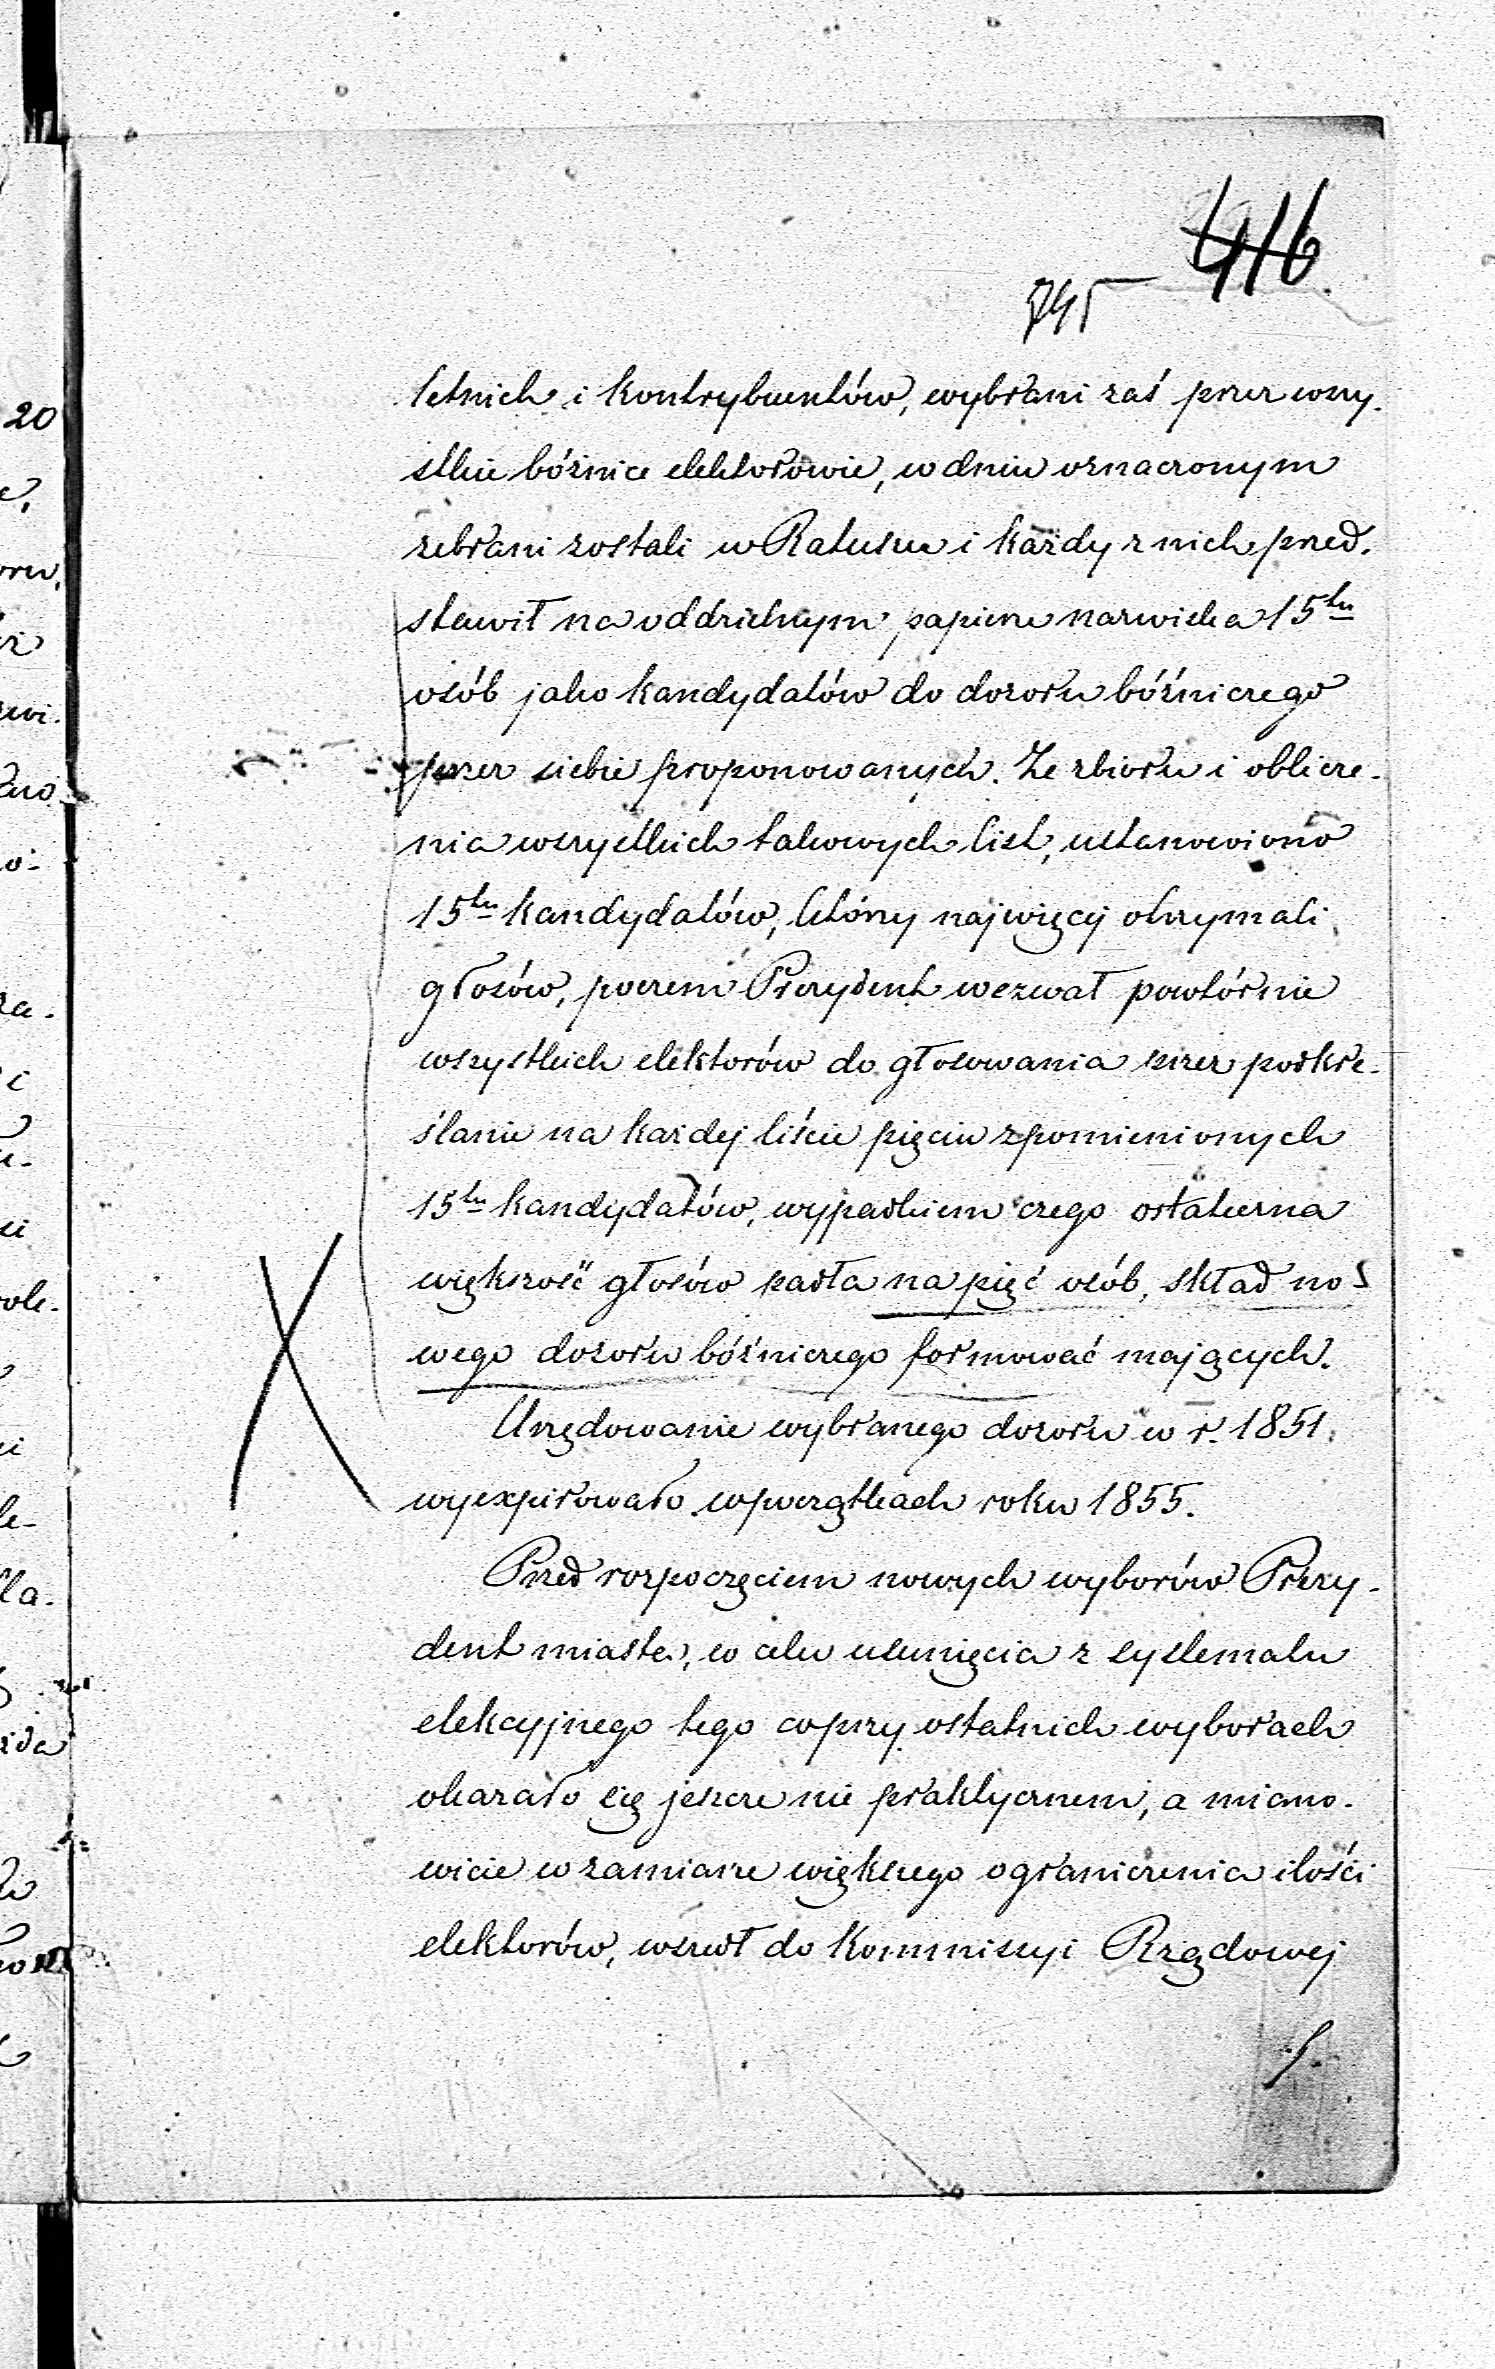 416.
letnich i kontrybuentów, wybrani zaś przez wszy-
stkie bóżnice elektorowie, w dniu oznaczonym
zebrani zostali w Ratuszu i każdy z nich przed-
stawił na oddzielnym papierze nazwiska 15tu
osób jako kandydatów do dozoru bóźniczego
przez siebie proponowanych. Ze zbioru i oblicze-
nia wszystkich takowych list, ustanowiono
15tu kandydatów, którzy najwięcej otrzymali
głosów, poczem Prezydent wezwał powtórnie
wszystkich elektorów do głosowania przez podkre-
ślanie na każdej liście pięciu z pomienionych
15tu kandydatów, wypadkiem czego ostateczna
większość głosów padła na pięć osób, skład no-
wego dozoru bóźniczego formować mających.
Urzędowanie wybranego dozoru w r. 1851
wyexpirowało w początkach roku 1855.
Przed rozpoczęciem nowych wyborów Prezy-
dent miasta, w celu usunięcia z systematu
elekcyjnego tego co przy ostatnich wyborach
okazało się jeszcze nie praktycznem, a miano-
wicie w zamiarze większego ograniczenia ilości
elektorów, wszedł do Kommissyi Rządowej
20